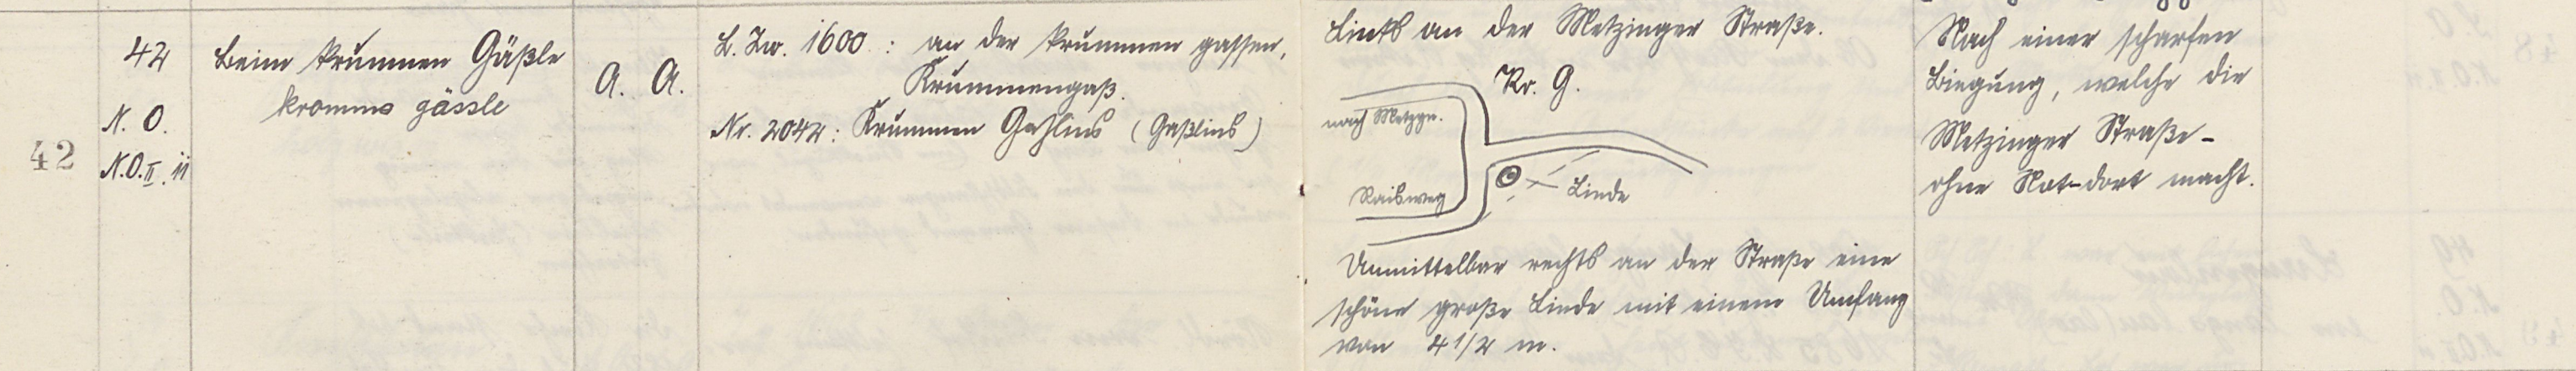 42
42
N. O.
N.O. II. 11
Beim krummen Gäßle
kromms gässle
A. A.
L. Zw. 1600 : an der krummen gassen,
Krummengaß.
Nr. 2042: Krummen Geßlins (Gäßlins)
Links an der Metzinger Straße.
Kr. G.
nach Metzgn.
Linde
Unmittelbar rechts an der Straße eine
schöne große Linde mit einem Umfang
von 4 1/2 m.
Nach einer scharfen
Biegung, welche die
Metzinger Straße -
ohne Not - dort macht.